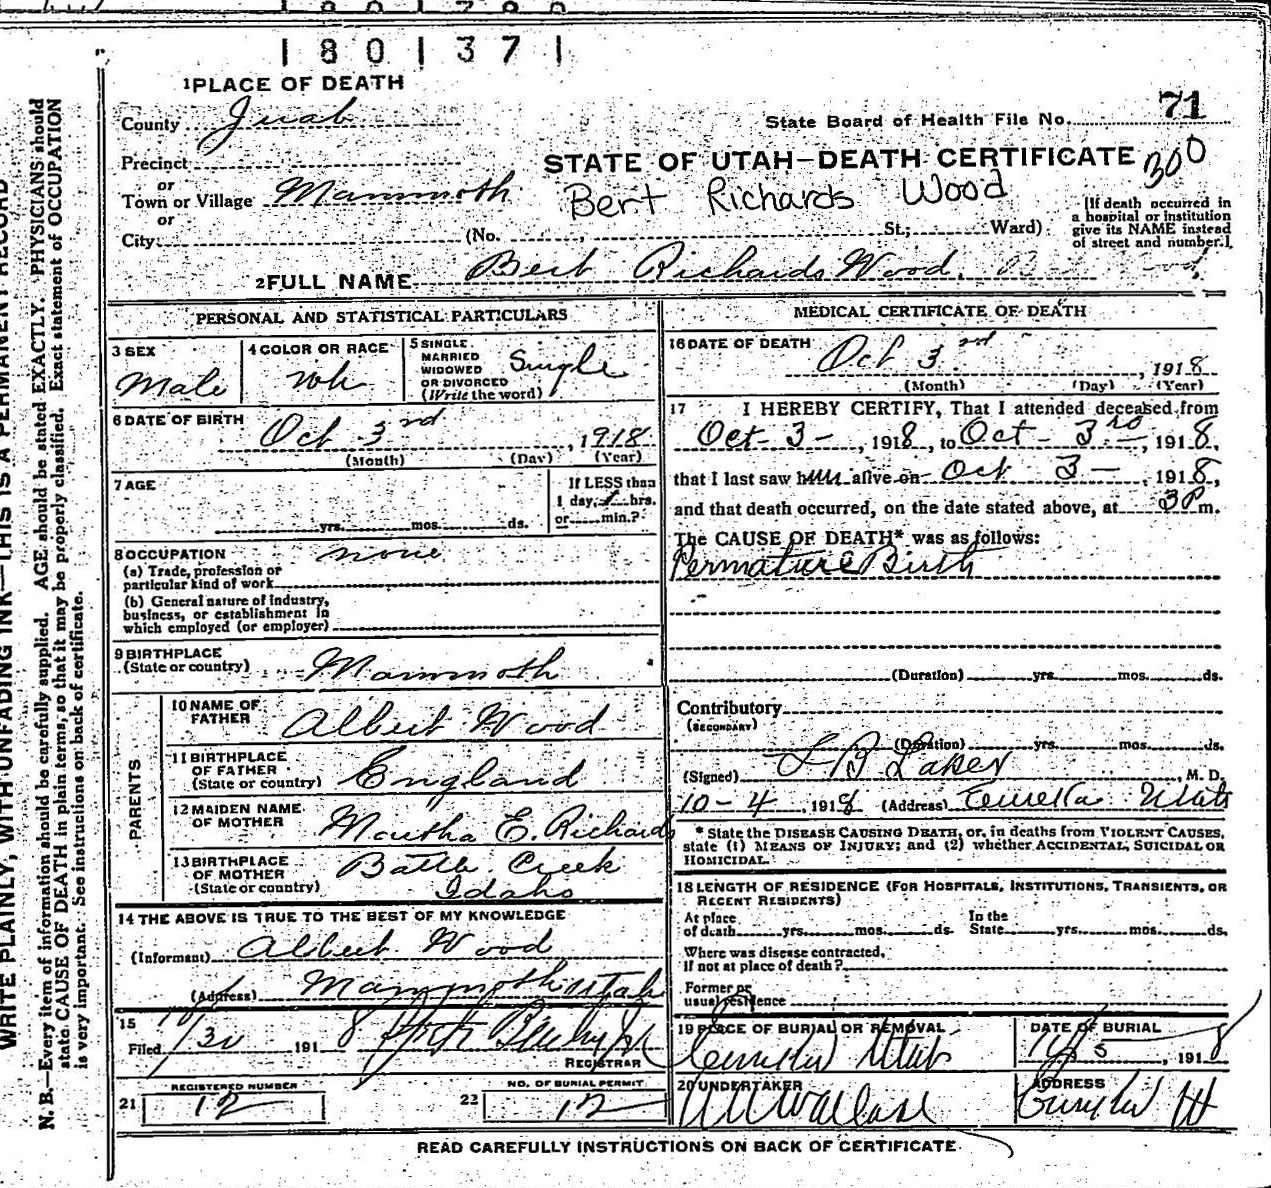 1801371
1 PLACE OF DEATH
County Juab
State Board of Health File No. 71
Precinct
STATE OF UTAH-DEATH CERTIFICATE 300
or
Town or Village Mammoth
Bert Richards Wood
or
City (No. , St.; Ward)
(If death occurred in
a hospital or institution
give its NAME instead
of street and number.)
2 FULL NAME Bert Richards Wood.
PERSONAL AND STATISTICAL PARTICULARS
3 SEX
Male
4 COLOR OR RACE
wh
5 SINGLE
MARRIED
WIDOWED
OR DIVORCED
(Write the word)
Single
6 DATE OF BIRTH
Oct 3rd , 1918
(Month) (Day) (Year)
7 AGE
yrs. mos. ds.
If LESS than
1 day, 1 hrs.
or min.?
8 OCCUPATION none
(a) Trade, profession or
particular kind of work
(b) General nature of industry,
business, or establishment in
which employed (or employer)
9 BIRTHPLACE
(State or country) Mammoth
PARENTS
10 NAME OF
FATHER Albert Wood
11 BIRTHPLACE
OF FATHER
(State or country) England
12 MAIDEN NAME
OF MOTHER Martha E. Richards
13 BIRTHPLACE
OF MOTHER
(State or country)
Battle Creek
Idaho
14 THE ABOVE IS TRUE TO THE BEST OF MY KNOWLEDGE
(Informant) Albert Wood
(Address) Mammoth Utah
15
Filed 191 8
REGISTRAR
REGISTERED NUMBER
21 12
NO. OF BURIAL PERMIT
22 12
MEDICAL CERTIFICATE OF DEATH
16 DATE OF DEATH
Oct 3rd , 1918
(Month) (Day) (Year)
17 I HEREBY CERTIFY, That I attended deceased from
Oct - 3 - , 1918, to Oct - 3rd - , 1918,
that I last saw him alive on Oct 3 - , 1918,
and that death occurred, on the date stated above, at 3 P m.
The CAUSE OF DEATH* was as follows:
Permature Birth
(Duration) yrs. mos. ds.
Contributory
(SECONDARY)
(Duration) yrs. mos. ds.
(Signed) L B Laker , M. D.
10-4 , 1918 (Address) Eureka Utah
* State the DISEASE CAUSING DEATH, or, in deaths from VIOLENT CAUSES,
state (1) MEANS OF INJURY; and (2) whether ACCIDENTAL, SUICIDAL OR
HOMICIDAL.
18 LENGTH OF RESIDENCE (FOR HOSPITALS, INSTITUTIONS, TRANSIENTS, OR
RECENT RESIDENTS)
At place
of death yrs. mos. ds.
In the
State yrs. mos. ds.
Where was disease contracted,
if not at place of death?
Former or
usual residence
19 PLACE OF BURIAL OR REMOVAL
Eureka Utah
DATE OF BURIAL
5 , 191 8
20 UNDERTAKER
ADDRESS
Eureka Ut
READ CAREFULLY INSTRUCTIONS ON BACK OF CERTIFICATE.
WRITE PLAINLY, WITH UNFADING INK—THIS IS A PERMANENT RECORD
N. B.—Every item of information should be carefully supplied. AGE should be stated EXACTLY. PHYSICIANS should
state CAUSE OF DEATH in plain terms, so that it may be properly classified. Exact statement of OCCUPATION
is very important. See instructions on back of certificate.